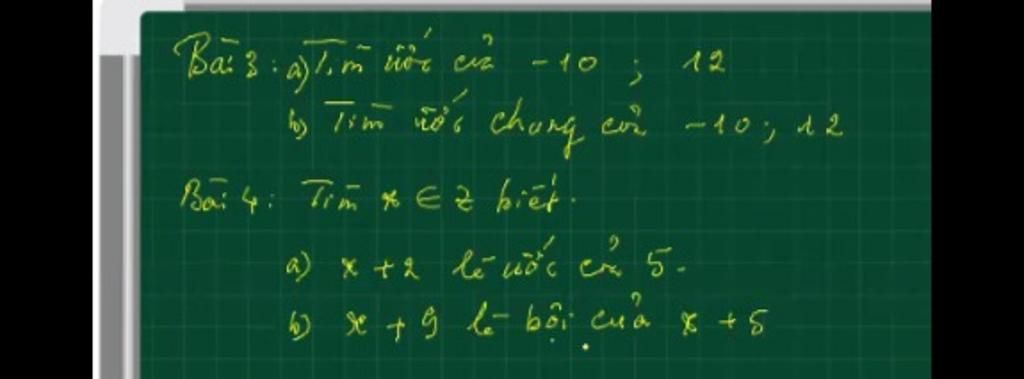 Bài 3: a) Tìm ước của -10 ; 12
b) Tìm ước chung của -10; 12
Bài 4: Tìm x ∈ Z biết.
a) x + 2 là ước của 5.
b) x + 9 là bội của x + 5